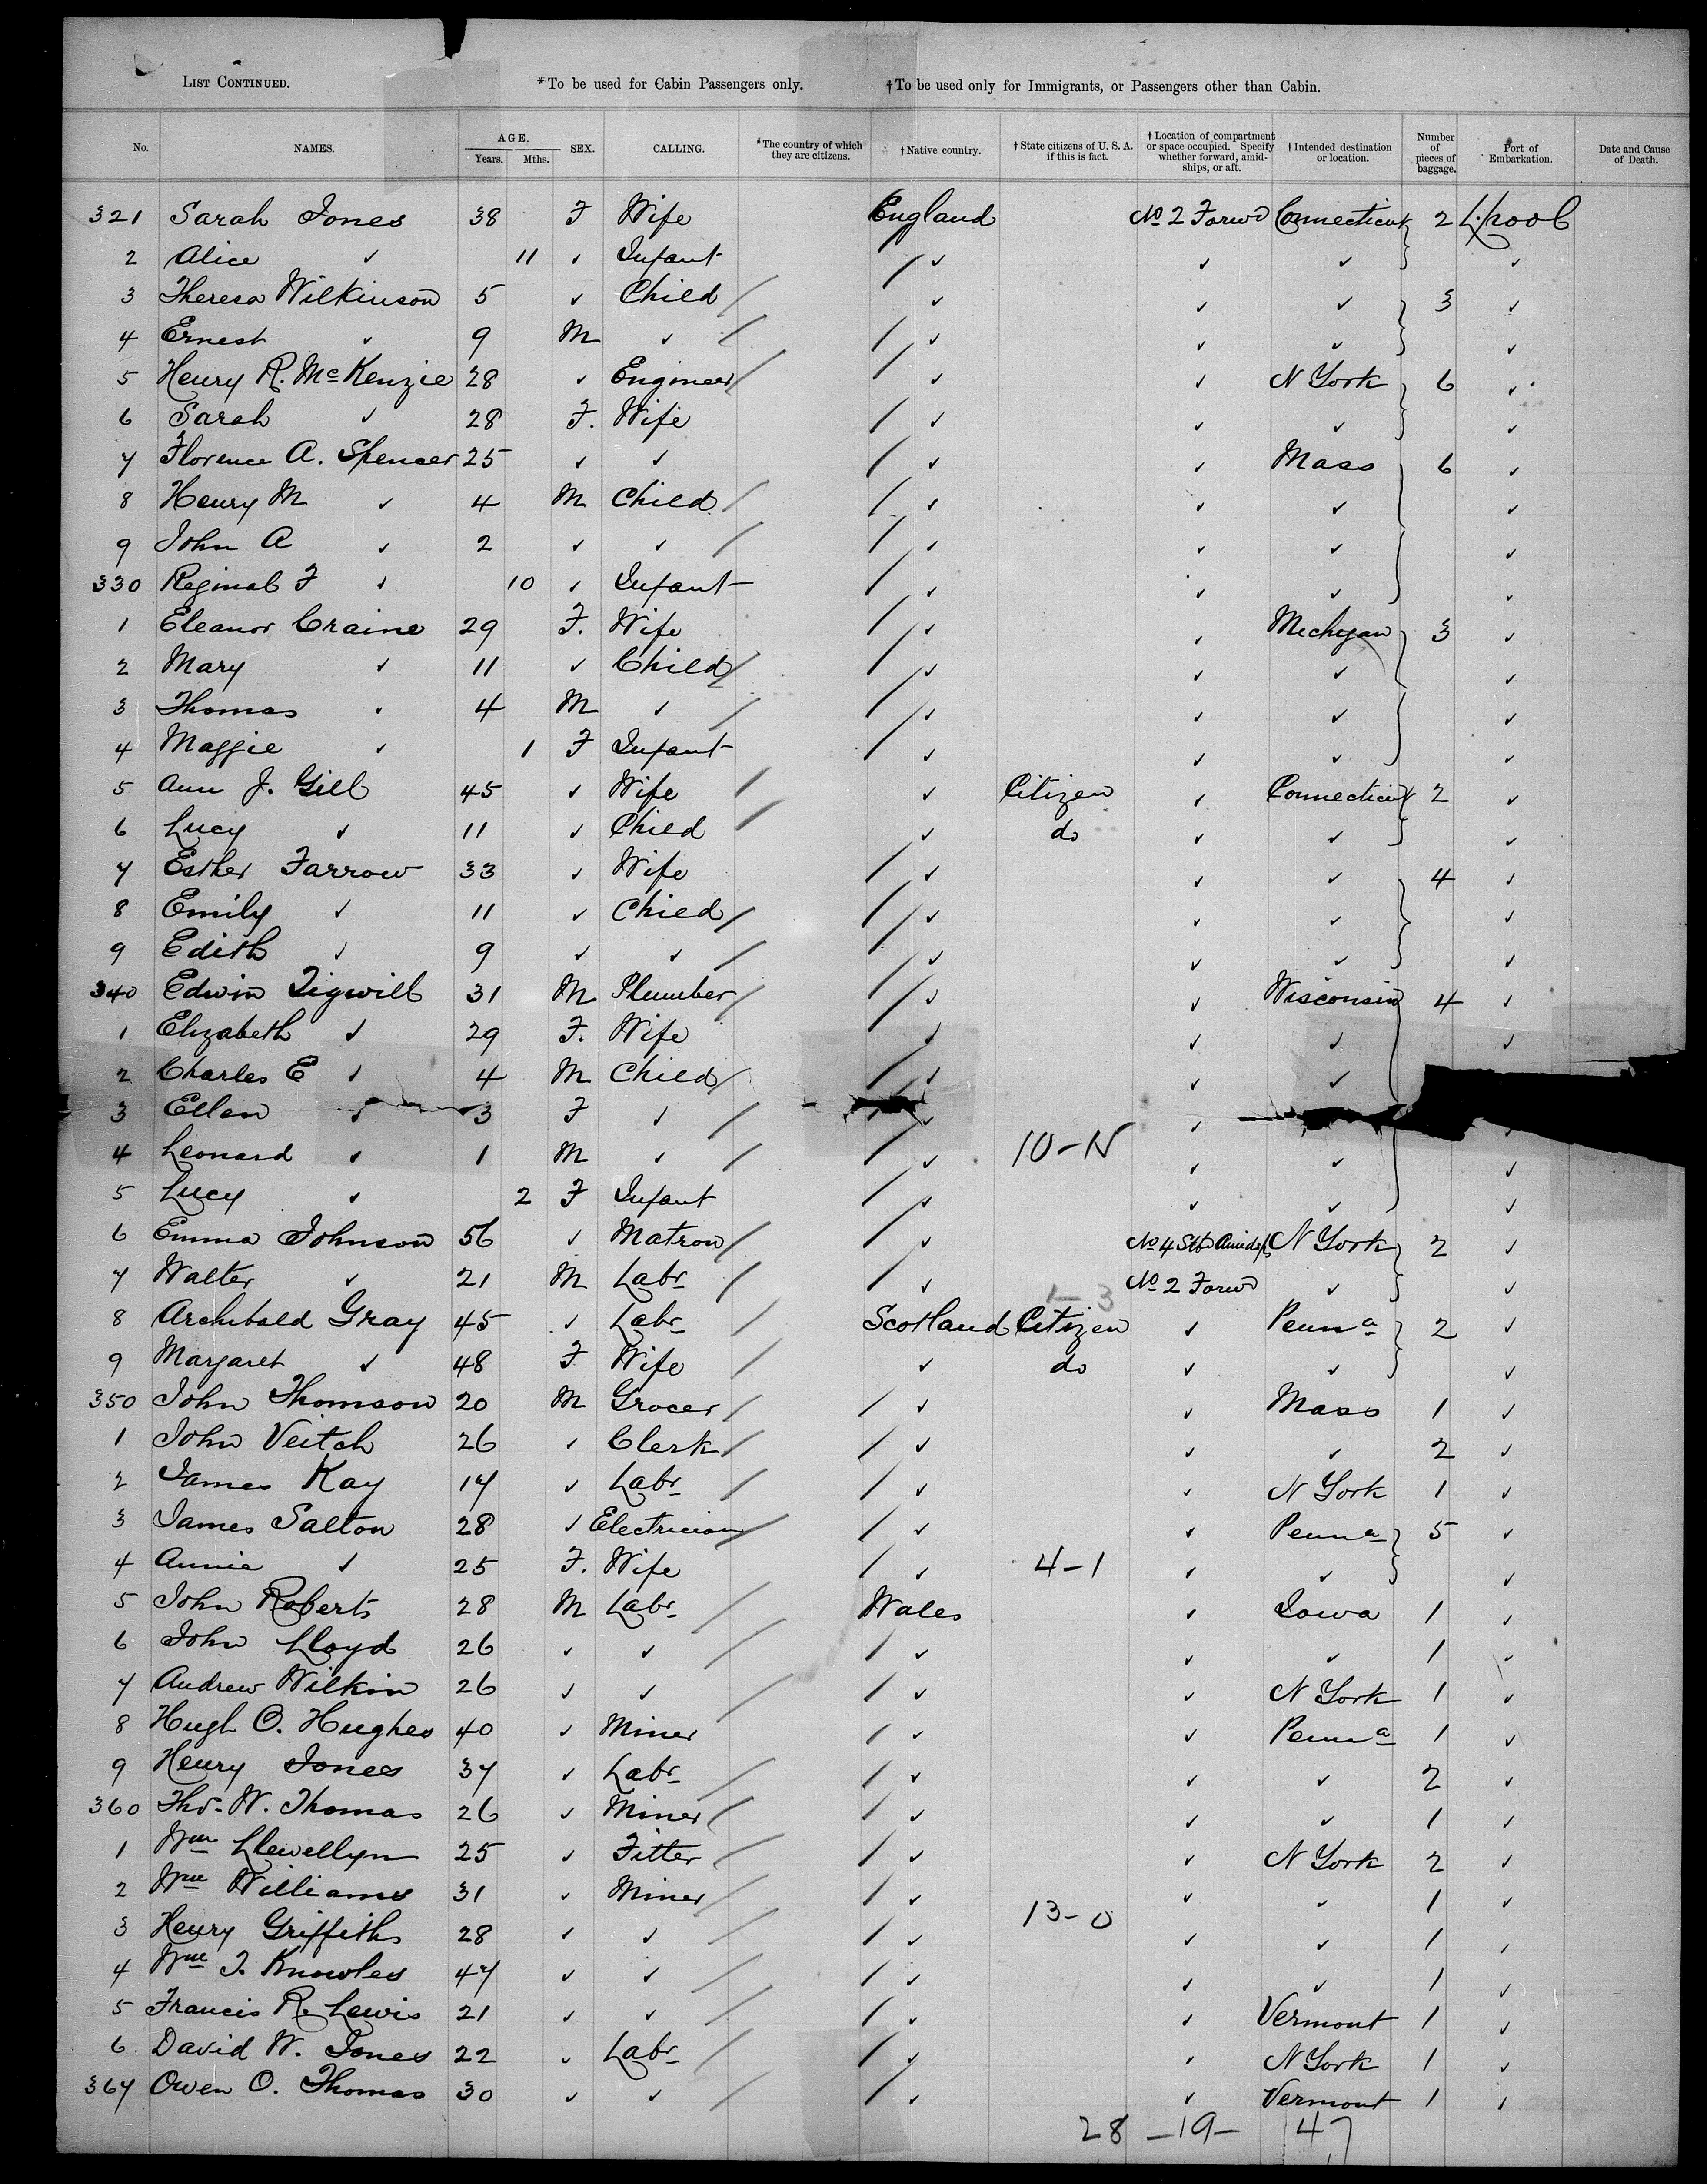 LIST CONTINUED. *To be used for Cabin Passengers only. †To be used only for Immigrants, or Passengers other than Cabin.
No. NAMES. AGE. Years. Mths. SEX. CALLING. *The country of which they are citizens. †Native country. †State citizens of U. S. A. if this is fact. †Location of compartment or space occupied. Specify whether forward, amidships, or aft. †Intended destination or location. Number of pieces of baggage. Port of Embarkation. Date and Cause of Death.
321 Sarah Jones 38 F Wife England No 2 Forwd Connecticut 2 L'pool
2 Alice ✓ 11 ✓ Infant / ✓ ✓ ✓ ✓
3 Theresa Wilkinson 5 ✓ Child / ✓ ✓ ✓ 3 ✓
4 Ernest ✓ 9 M ✓ / / ✓ ✓ ✓ ✓
5 Henry R. McKenzie 28 ✓ Engineer / / ✓ ✓ N York 6 ✓
6 Sarah ✓ 28 F. Wife / ✓ ✓ ✓ ✓
7 Florence A. Spencer 25 ✓ ✓ / ✓ ✓ Mass 6 ✓
8 Henry M ✓ 4 M Child / / ✓ ✓ ✓ ✓
9 John A ✓ 2 ✓ ✓ / / ✓ ✓ ✓ ✓
330 Reginal F ✓ 10 ✓ Infant / ✓ ✓ ✓ ✓
1 Eleanor Craine 29 F. Wife / ✓ ✓ Michigan 3 ✓
2 Mary ✓ 11 ✓ Child / / ✓ ✓ ✓ ✓
3 Thomas ✓ 4 M ✓ / / ✓ ✓ ✓ ✓
4 Maggie ✓ 1 F Infant / ✓ ✓ ✓ ✓
5 Ann J. Gill 45 ✓ Wife / ✓ Citizen ✓ Connecticut 2 ✓
6 Lucy ✓ 11 ✓ Child / ✓ do ✓ ✓ ✓
7 Esther Farrow 33 ✓ Wife / ✓ ✓ ✓ 4 ✓
8 Emily ✓ 11 ✓ Child / / ✓ ✓ ✓ ✓
9 Edith ✓ 9 ✓ ✓ / / ✓ ✓ ✓ ✓
340 Edwin Tigwill 31 M Plumber / / ✓ ✓ Wisconsin 4 ✓
1 Elizabeth ✓ 29 F. Wife ✓ ✓ ✓ ✓
2 Charles E ✓ 4 M Child / / ✓ ✓ ✓
3 Ellen ✓ 3 F ✓ / / ✓ ✓ ✓
4 Leonard ✓ 1 M ✓ / / ✓ 10-N ✓ ✓ ✓
5 Lucy ✓ 2 F Infant / ✓ ✓ ✓ ✓
6 Emma Johnson 56 ✓ Matron / / ✓ No 4 Stb Amids N York 2 ✓
7 Walter ✓ 21 M Labr / / ✓ 1-3 No 2 Forwd ✓ ✓
8 Archibald Gray 45 ✓ Labr / Scotland Citizen ✓ Penna 2 ✓
9 Margaret ✓ 48 F Wife / ✓ do ✓ ✓ ✓
350 John Thomson 20 M Grocer / / ✓ ✓ Mass 1 ✓
1 John Veitch 26 ✓ Clerk / / ✓ ✓ ✓ 2 ✓
2 James Kay 17 ✓ Labr / / ✓ ✓ N York 1 ✓
3 James Salton 28 ✓ Electrician / / ✓ ✓ Penna 5 ✓
4 Annie ✓ 25 F. Wife / ✓ 4-1 ✓ ✓ ✓
5 John Roberts 28 M Labr / Wales ✓ Iowa 1 ✓
6 John Lloyd 26 ✓ ✓ / / ✓ ✓ ✓ 1 ✓
7 Andrew Wilkin 26 ✓ ✓ / / ✓ ✓ N York 1 ✓
8 Hugh O. Hughes 40 ✓ Miner / ✓ ✓ Penna 1 ✓
9 Henry Jones 37 ✓ Labr / / ✓ ✓ ✓ 2 ✓
360 Thos. W. Thomas 26 ✓ Miner / / ✓ ✓ ✓ 1 ✓
1 Wm Llewellyn 25 ✓ Fitter / / ✓ ✓ N York 2 ✓
2 Wm Williams 31 ✓ Miner / / ✓ ✓ ✓ 1 ✓
3 Henry Griffiths 28 ✓ ✓ / / ✓ 13-0 ✓ ✓ 1 ✓
4 Wm T. Knowles 47 ✓ ✓ / / ✓ ✓ ✓ 1 ✓
5 Francis R. Lewis 21 ✓ ✓ / / ✓ ✓ Vermont 1 ✓
6 David W. Jones 22 ✓ Labr / / ✓ ✓ N York 1 ✓
367 Owen O. Thomas 30 ✓ ✓ / / ✓ ✓ Vermont 1 ✓
28 -19- 47